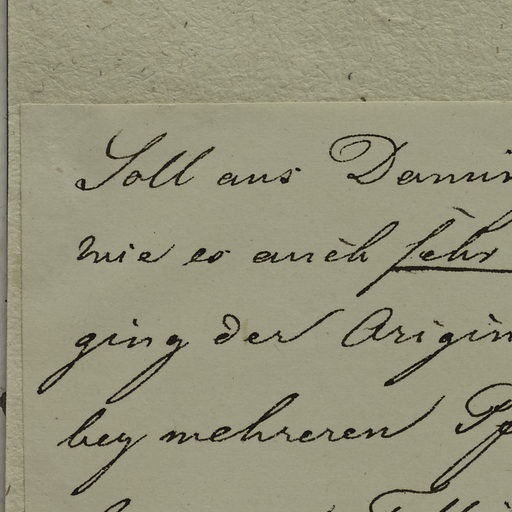 Soll aus Damin
wie es auch sehr
ging der Origin
bey mehreren